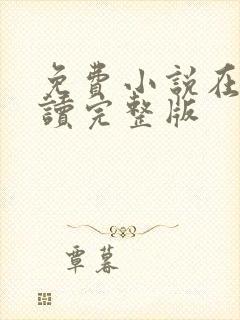 免費小說在
讀完整版
覃暮